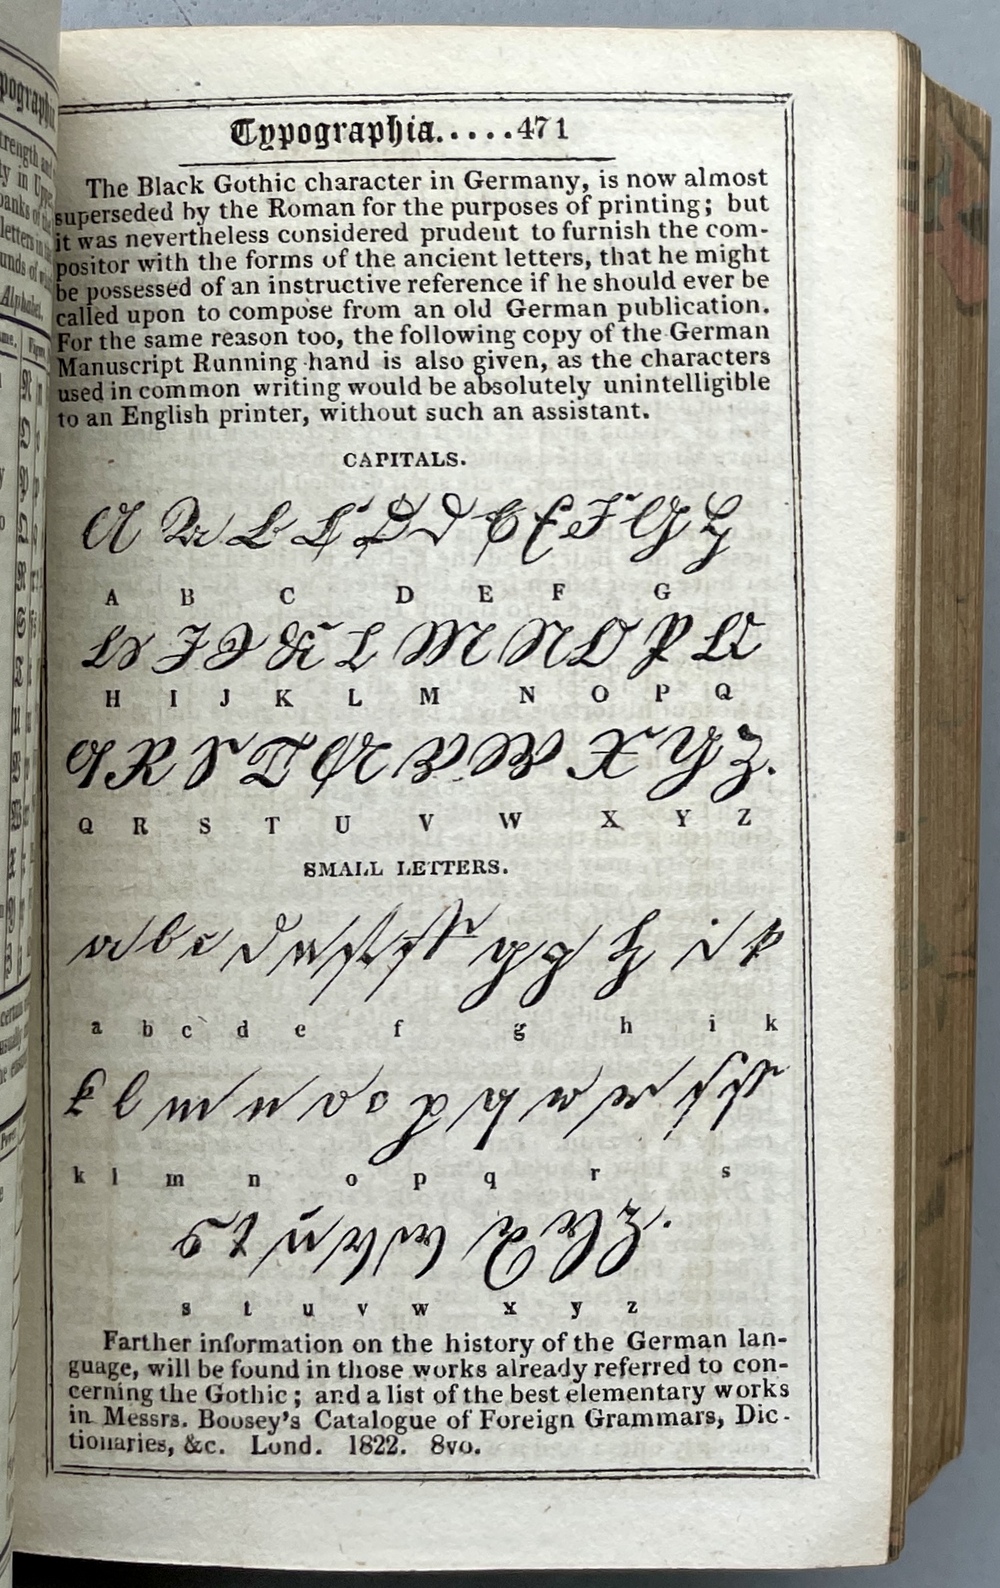 Typographia.....471
The Black Gothic character in Germany, is now almost
superseded by the Roman for the purposes of printing; but
it was nevertheless considered prudent to furnish the com-
positor with the forms of the ancient letters, that he might
be possessed of an instructive reference if he should ever be
called upon to compose from an old German publication.
For the same reason too, the following copy of the German
Manuscript Running hand is also given, as the characters
used in common writing would be absolutely unintelligible
to an English printer, without such an assistant.
CAPITALS.
A B C D E F G
H I J K L M N O P Q
Q R S T U V W X Y Z
SMALL LETTERS.
a b c d e f g h i k
k l m n o p q r s
s t u v w x y z
Farther information on the history of the German lan-
guage, will be found in those works already referred to con-
cerning the Gothic; and a list of the best elementary works
in Messrs. Boosey's Catalogue of Foreign Grammars, Dic-
tionaries, &c. Lond. 1822. 8vo.